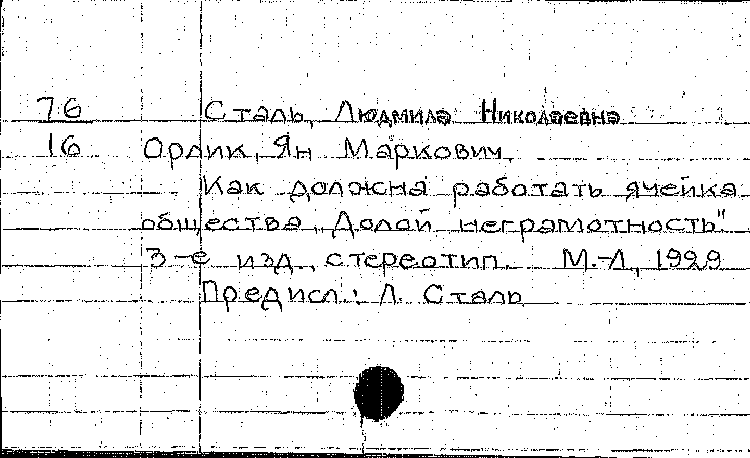 76 Сталь, Людмила Николаевна
16 Орлик, Ян Маркович.
Как должна работать ячейка
общества „Долой неграмотность"
3-е изд., стереотип. М.-Л., 1929
Предисл.: Л. Сталь